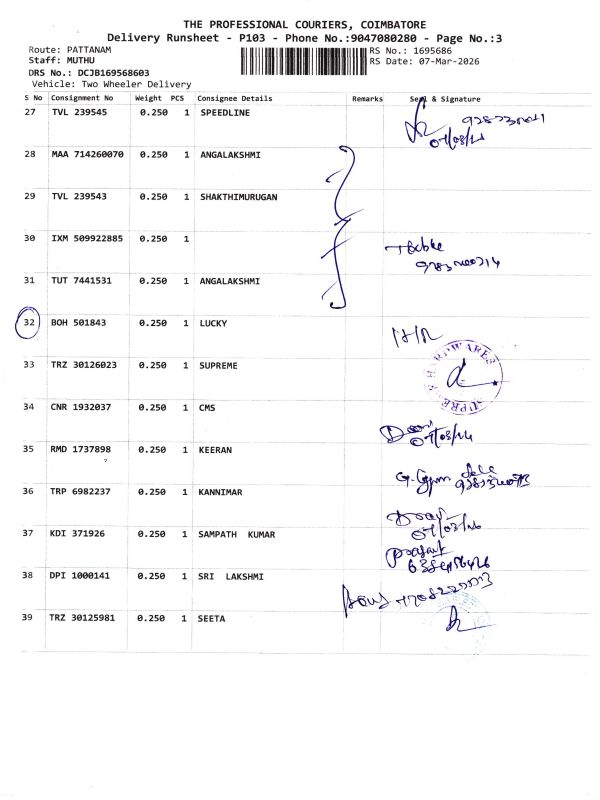 THE PROFESSIONAL COURIERS, COIMBATORE
Delivery Runsheet - P103 - Phone No.:9047080280 - Page No.:3
Route: PATTANAM RS No.: 1695686
Staff: MUTHU RS Date: 07-Mar-2026
DRS No.: DCJB169568603
Vehicle: Two Wheeler Delivery
S No Consignment No Weight PCS Consignee Details Remarks Seal & Signature
27 TVL 239545 0.250 1 SPEEDLINE
28 MAA 714260070 0.250 1 ANGALAKSHMI
29 TVL 239543 0.250 1 SHAKTHIMURUGAN
30 IXM 509922885 0.250 1
31 TUT 7441531 0.250 1 ANGALAKSHMI
32 BOH 501843 0.250 1 LUCKY
33 TRZ 30126023 0.250 1 SUPREME
HARDWARES
SUPREME
34 CNR 1932037 0.250 1 CMS
35 RMD 1737898 0.250 1 KEERAN
36 TRP 6982237 0.250 1 KANNIMAR
37 KDI 371926 0.250 1 SAMPATH KUMAR
38 DPI 1000141 0.250 1 SRI LAKSHMI
39 TRZ 30125981 0.250 1 SEETA